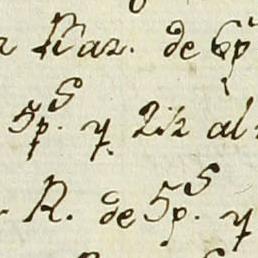 Raz. de 6p
5p.s y 2½ al
R. de 5p.s y